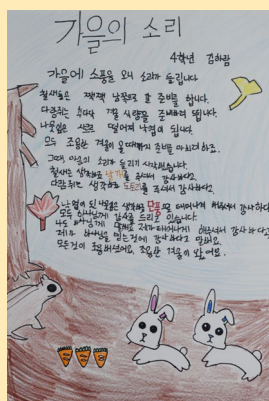 가을의 소리
4학년 김하람
가을에 소풍을 오니 소리가 들립니다.
철새들은 짹짹 남쪽으로 갈 준비를 합니다.
다람쥐는 겨울 식량을 준비하며 뜁니다.
나뭇잎은 떨어져 낙엽이 됩니다.
모두 조용한 겨울이 올 때까지 준비를 마치려 하죠.
그때 마음의 소리가 들리기 시작했습니다.
철새는 생각하고 날개를 주셔서 감사하다고.
다람쥐는 생각하고 도토리를 주셔서 감사하다고.
낙엽이 된 나뭇잎은 태어나게 해주셔서 감사하다고
모두 하나님께 감사를 드리고 있습니다.
나도 하나님께 제가 태어나게 해주셔서 감사하다고
제가 하나님을 믿는 것에 감사하다고 말해요.
모든 것이 조용해졌어요. 조용한 겨울이 왔어요.